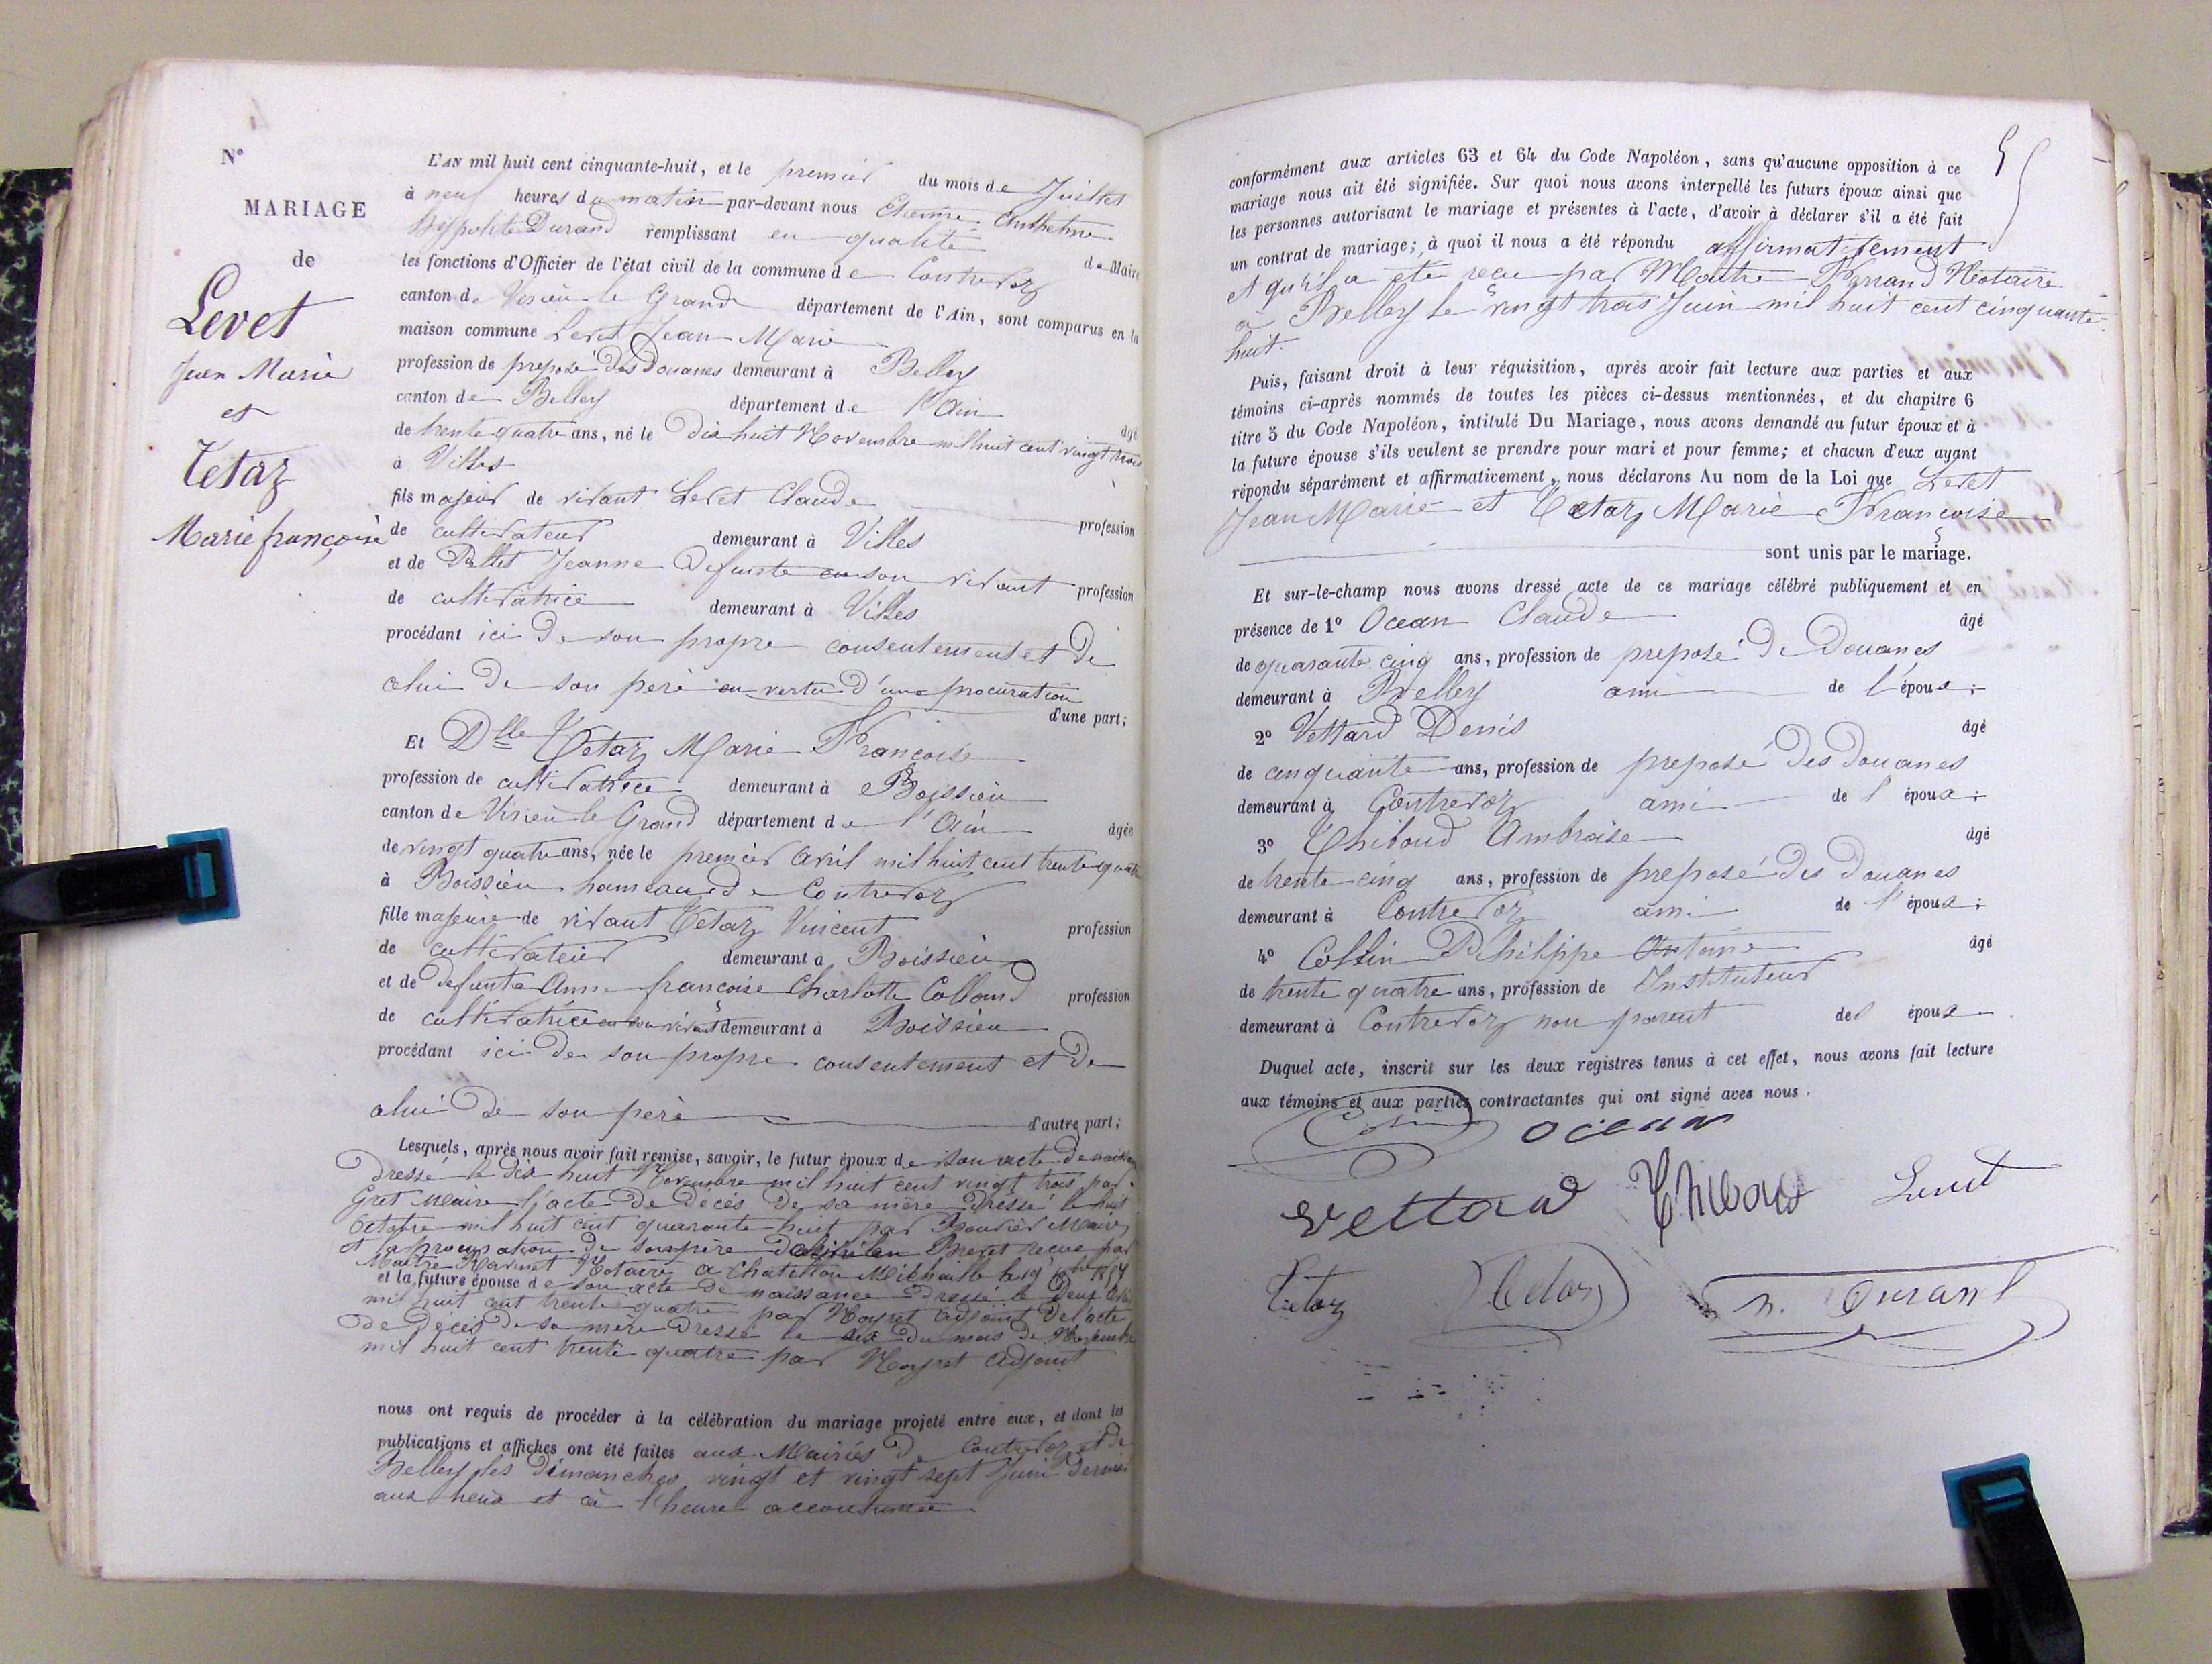 N°
MARIAGE
de
Levet
Jean Marie
et
Tetaz
Marie françoise
L'AN mil huit cent cinquante-huit, et le premier du mois de Juillet
à neuf heures du matin par-devant nous Etienne Anthelme
hippolite Durand remplissant en qualité de Maire
les fonctions d'Officier de l'état civil de la commune de Contrevoz
canton de Virieu le Grand département de l'Ain, sont comparus en la
maison commune Levet Jean Marie
profession de preposé des Douanes demeurant à Belley
canton de Belley département de l'Ain âgé
de trente quatre ans, né le Dix huit Novembre mil huit cent vingt trois
à Villes
fils majeur de vivant Levet Claude profession
de cultivateur demeurant à Villes
et de Pellet Jeanne Defunte en son vivant profession
de cultivatrice demeurant à Villes
procédant ici de son propre consentement et de
celui de son père en vertu d'une procuration
d'une part;
Et Dlle Tetaz Marie Françoise
profession de cultivatrice demeurant à Boissieu
canton de Virieu le Grand département de l'Ain âgée
de vingt quatre ans, née le premier avril mil huit cent trente quatre
à Boissieu hameau de Contrevoz
fille majeure de vivant Tetaz Vincent profession
de cultivateur demeurant à Boissieu
et de defunte Anne françoise Charlotte Colland profession
de cultivatrice en son vivant demeurant à Boissieu
procédant ici de son propre consentement et de
celui de son père d'autre part;
Lesquels, après nous avoir fait remise, savoir, le futur époux de son acte de
Dressé le dix huit Novembre mil huit cent vingt trois par
Gret Maire l'acte de décès de sa mère Dressé le huit
Octobre mil huit cent quarante huit par Bouvier Maire
et la procuration de son père Brevet reçue par
Maitre Ravinet Notaire a Chatillon Michaille le
et la future épouse de son acte de naissance Dressé le Deux
mil huit cent trente quatre par Noyret adjoint de l'acte
de décès de sa mère Dressé le dix du mois de Novembre
mil huit cent trente quatre par Noyret adjoint
nous ont requis de procéder à la célébration du mariage projeté entre eux, et dont les
publications et affiches ont été faites aux Mairies de Contrevoz et de
Belley les Dimanches vingt et vingt sept Juin dernier
aux lieux et à l'heure accoutumée
5
conformément aux articles 63 et 64 du Code Napoléon, sans qu'aucune opposition à ce
mariage nous ait été signifiée. Sur quoi nous avons interpellé les futurs époux ainsi que
les personnes autorisant le mariage et présentes à l'acte, d'avoir à déclarer s'il a été fait
un contrat de mariage; à quoi il nous a été répondu affirmativement
et qu'il a été reçu par Maitre Notaire
a Belley le vingt trois Juin mil huit cent cinquante
huit.
Puis, faisant droit à leur réquisition, après avoir fait lecture aux parties et aux
témoins ci-après nommés de toutes les pièces ci-dessus mentionnées, et du chapitre 6
titre 5 du Code Napoléon, intitulé Du Mariage, nous avons demandé au futur époux et à
la future épouse s'ils veulent se prendre pour mari et pour femme; et chacun d'eux ayant
répondu séparément et affirmativement, nous déclarons Au nom de la Loi que Levet
Jean Marie et Tetaz Marie Françoise
sont unis par le mariage.
Et sur-le-champ nous avons dressé acte de ce mariage célébré publiquement et en
présence de 1° Ocean Claude âgé
de quarante cinq ans, profession de preposé de Douanes
demeurant à Belley ami de l'époux;
2° Vettard Denis âgé
de cinquante ans, profession de preposé des Douanes
demeurant à Contrevoz ami de l'époux;
3° Thiboud Ambroise âgé
de trente cinq ans, profession de preposé des Douanes
demeurant à Contrevoz ami de l'époux;
4° Collin Philippe Antoine âgé
de trente quatre ans, profession de Instituteur
demeurant à Contrevoz non parent de l'époux
Duquel acte, inscrit sur les deux registres tenus à cet effet, nous avons fait lecture
aux témoins et aux parties contractantes qui ont signé avec nous.
Colin Ocean
Vettard Thiboud Levet
Tetaz Tetaz h. Durand